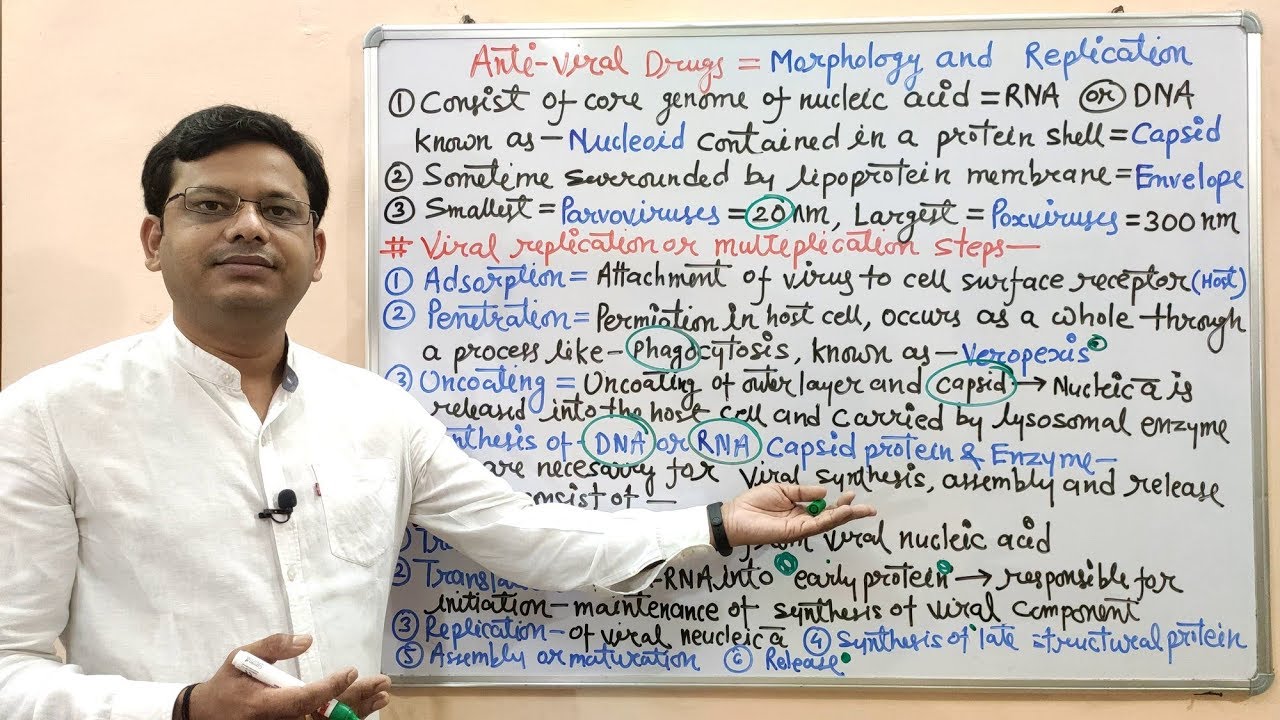 Anti-viral Drugs = Morphology and Replication
① Consist of core genome of nucleic acid = RNA or DNA
known as - Nucleoid contained in a protein shell = Capsid
② Sometime surrounded by lipoprotein membrane = Envelope
③ Smallest = Parvoviruses = 20 nm, Largest = Poxviruses = 300 nm
# Viral replication or multiplication steps —
① Adsorption = Attachment of virus to cell surface receptor (Host)
② Penetration = Permiation in host cell, occurs as a whole through
a process like - Phagocytosis, known as - Veropexis
③ Uncoating = Uncoating of outer layer and capsid → Nucleic a is
released into the host cell and carried by lysosomal enzyme
nthesis of DNA or RNA Capsid protein & Enzyme —
are necesarry for viral synthesis, assembly and release
onsist of —
from viral nucleic acid
② Translat -RNA into early protein → responsible for
initiation - maintenance of synthesis of viral component
③ Replication - of viral neucleic a ④ Synthesis of late structural protein
⑤ Assembly or maturation ⑥ Release